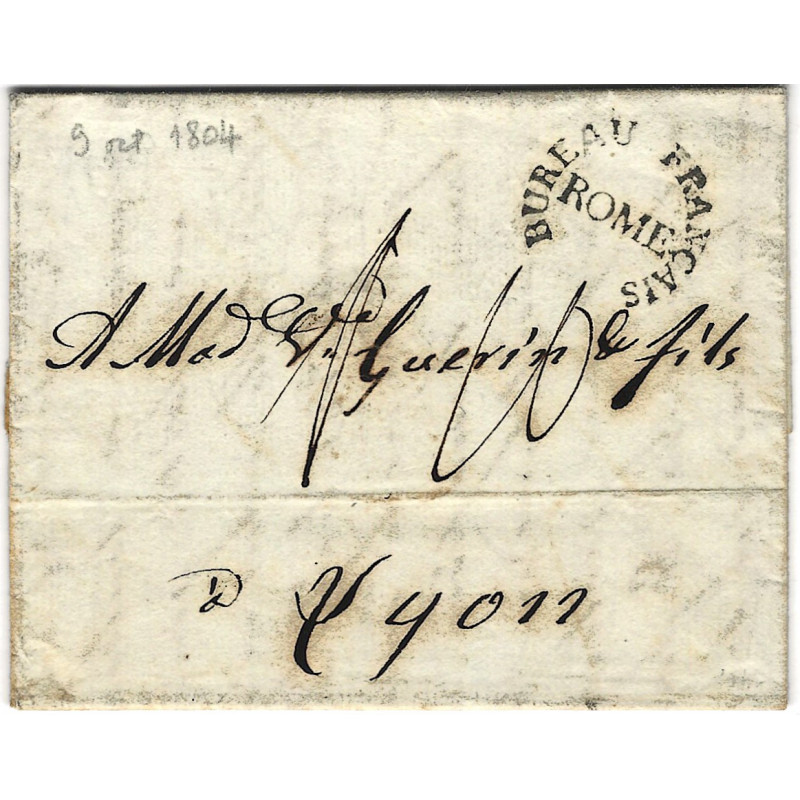 9 oct 1804
BUREAU FRANÇAIS
ROME
A Mad V.ve Guerin & fils
à Lyon